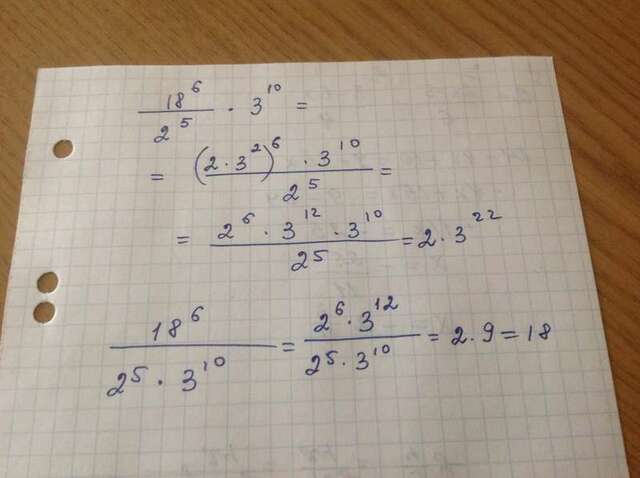 18⁶/2⁵ · 3¹⁰ =
= (2·3²)⁶ · 3¹⁰/2⁵ =
= 2⁶ · 3¹² · 3¹⁰/2⁵ = 2·3²²
18⁶/2⁵ · 3¹⁰ = 2⁶·3¹²/2⁵·3¹⁰ = 2·9=18